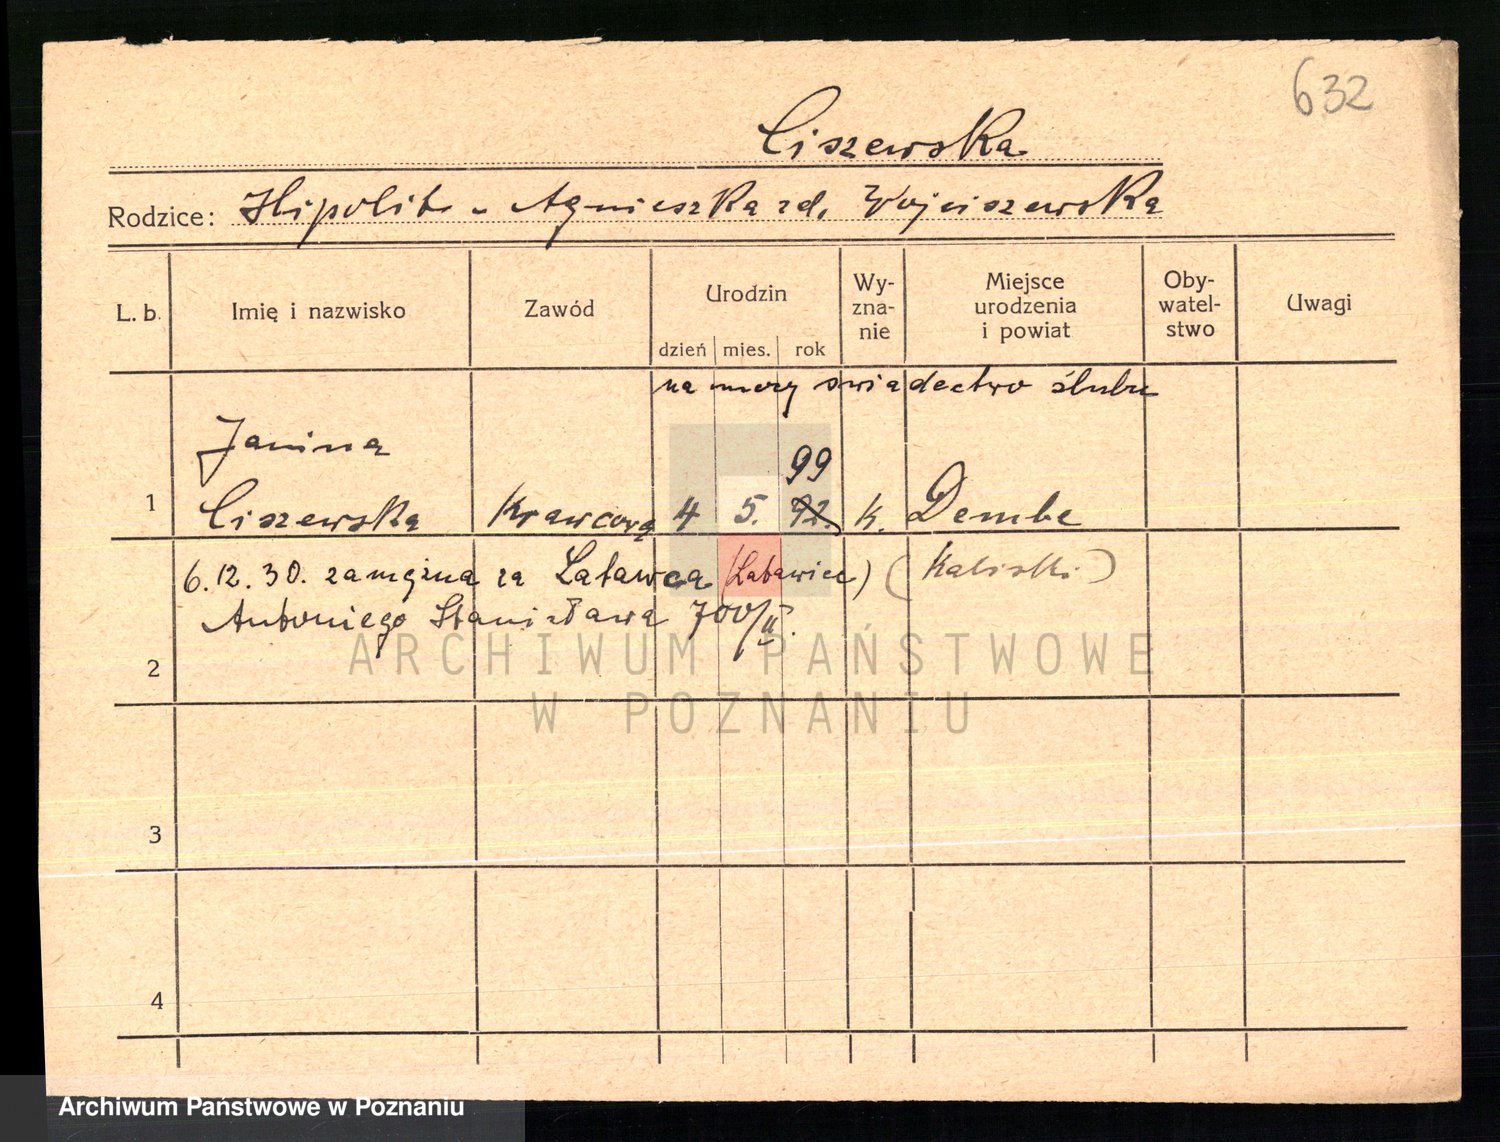 632
Ciszewska
Rodzice: Hipolit - Agnieszka zd. Wojciszewska
L. b. Imię i nazwisko Zawód Urodzin dzień mies. rok Wy-zna-nie Miejsce urodzenia i powiat Oby-watel-stwo Uwagi
na mocy świadectwo ślubu
Janina
99
1 Ciszewska Krawcowa 4 5. 92. k. Dembe
6.12.30. zamężna za Latawca (Latawiec) (Kaliski)
Antoniego Stanisława 700/II.
2
ARCHIWUM PAŃSTWOWE
W POZNANIU
3
4
Archiwum Państwowe w Poznaniu